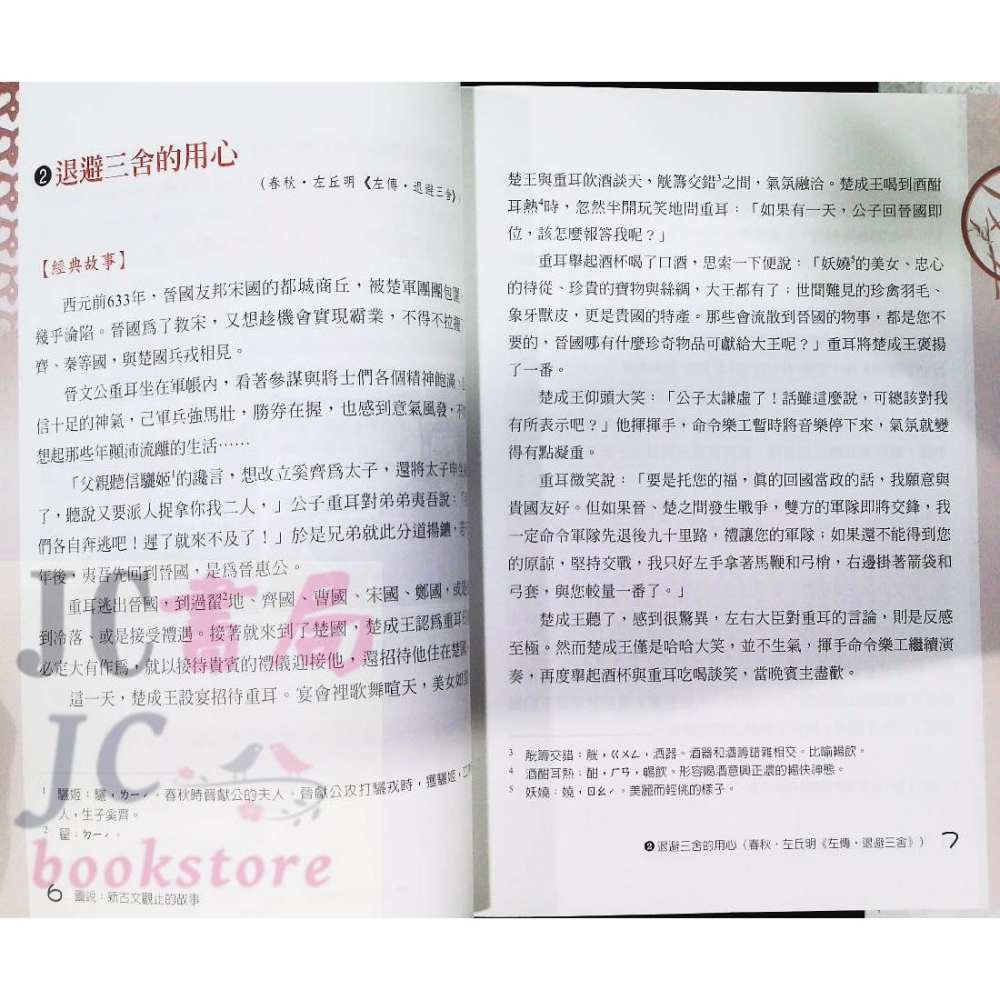 ❷退避三舍的用心
（春秋・左丘明《左傳・退避三舍》
【經典故事】
西元前633年，晉國友邦宋國的都城商丘，被楚軍團團包圍，
幾乎淪陷。晉國為了救宋，又想趁機會實現霸業，不得不拉攏
齊、秦等國，與楚國兵戎相見。
晉文公重耳坐在軍帳內，看著參謀與將士們各個精神飽滿、
信十足的神氣，己軍兵強馬壯，勝券在握，也感到意氣風發，不
想起那些年顛沛流離的生活……
「父親聽信驪姬1的讒言，想改立奚齊為太子，還將太子申生
了，聽說又要派人捉拿你我二人，」公子重耳對弟弟夷吾說：「
們各自奔逃吧！遲了就來不及了！」於是兄弟就此分道揚鑣，若
年後，夷吾先回到晉國，是為晉惠公。
重耳逃出晉國，到過翟2地、齊國、曹國、宋國、鄭國，或
到冷落、或是接受禮遇。接著就來到了楚國，楚成王認為重耳
必定大有作為，就以接待貴賓的禮儀迎接他，還招待他住在楚國
這一天，楚成王設宴招待重耳。宴會裡歌舞喧天，美女如
1 驪姬：驪，ㄌㄧˊ。春秋時晉獻公的夫人。晉獻公攻打驪戎時，獲驪姬，
人，生子奚齊。
2 翟：ㄉㄧˊ。
6 圖說：新古文觀止的故事
楚王與重耳飲酒談天，觥籌交錯3之間，氣氛融洽。楚成王喝到酒酣
耳熱4時，忽然半開玩笑地問重耳：「如果有一天，公子回晉國即
位，該怎麼報答我呢？」
重耳舉起酒杯喝了口酒，思索一下便說：「妖嬈5的美女、忠心
的待從、珍貴的寶物與絲綢，大王都有了；世間難見的珍禽羽毛、
象牙獸皮，更是貴國的特產。那些會流散到晉國的物事，都是您不
要的，晉國哪有什麼珍奇物品可獻給大王呢？」重耳將楚成王褒揚
了一番。
楚成王仰頭大笑：「公子太謙虛了！話雖這麼說，可總該對我
有所表示吧？」他揮揮手，命令樂工暫時將音樂停下來，氣氛就變
得有點凝重。
重耳微笑說：「要是托您的福，真的回國當政的話，我願意與
貴國友好。但如果晉、楚之間發生戰爭，雙方的軍隊即將交鋒，我
一定命令軍隊先退後九十里路，禮讓您的軍隊；如果還不能得到您
的原諒，堅持交戰，我只好左手拿著馬鞭和弓梢，右邊掛著箭袋和
弓套，與您較量一番了。」
楚成王聽了，感到很驚異，左右大臣對重耳的言論，則是反感
至極。然而楚成王僅是哈哈大笑，並不生氣，揮手命令樂工繼續演
奏，再度舉起酒杯與重耳吃喝談笑，當晚賓主盡歡。
3 觥籌交錯：觥，ㄍㄨㄥ，酒器。酒器和酒籌錯雜相交。比喻暢飲。
4 酒酣耳熱：酣，ㄏㄢ，暢飲。形容喝酒意興正濃的暢快神態。
5 妖嬈：嬈，ㄖㄠˊ。美麗而輕佻的樣子。
❷退避三舍的用心（春秋・左丘明《左傳・退避三舍》） 7
JC書局
JC
bookstore